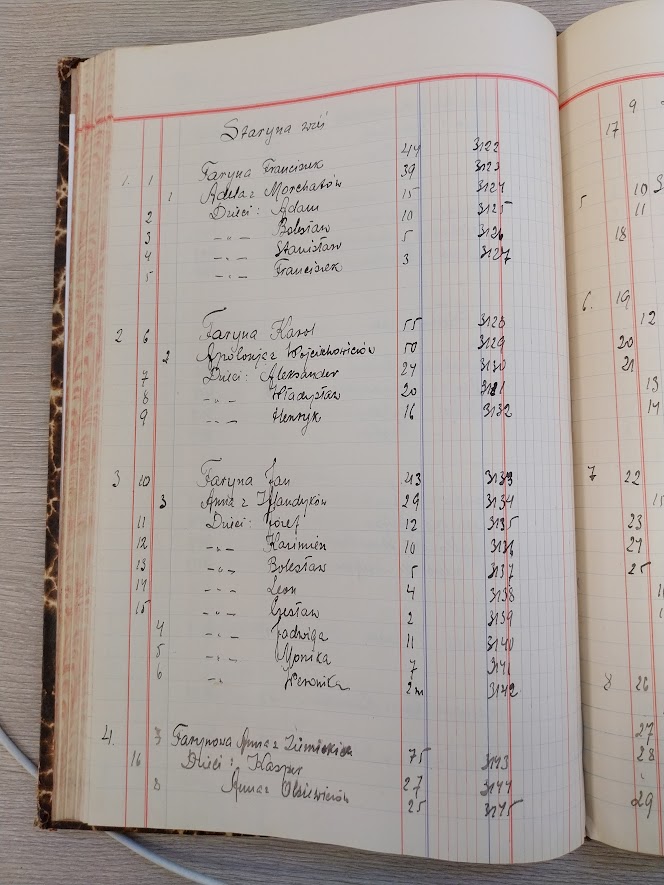 Staryna wieś
1. 1 Faryna Franciszek 44 3122
1 Adela z Morchatów 39 3123
2 Dzieci: Adam 15 3124
3 -„- Bolesław 10 3125
4 -„- Stanisław 5 3126
5 -„- Franciszek 3 3127
2 6 Faryna Karol 55 3128
2 Apolonja z Wojciechowiczów 50 3129
7 Dzieci: Aleksander 24 3130
8 -„- Władysław 20 3131
9 -„- Henryk 16 3132
3 10 Faryna Jan 43 3133
3 Anna z 29 3134
11 Dzieci: Józef 12 3135
12 -„- Kazimierz 10 3136
13 -„- Bolesław 5 3137
14 -„- Leon 4 3138
15 -„- Czesław 2 3139
4 -„- Jadwiga 11 3140
5 -„- Monika 7 3141
6 -„- Weronika 2m 3142
4. 7 Farynowa Anna z 75 3143
16 Dzieci: Kasper 27 3144
8 Anna z 25 3145
9
17
5 10
11
18
6. 19
12
20
21
13
14
7 22
23
24
25
8 26
27
28
29